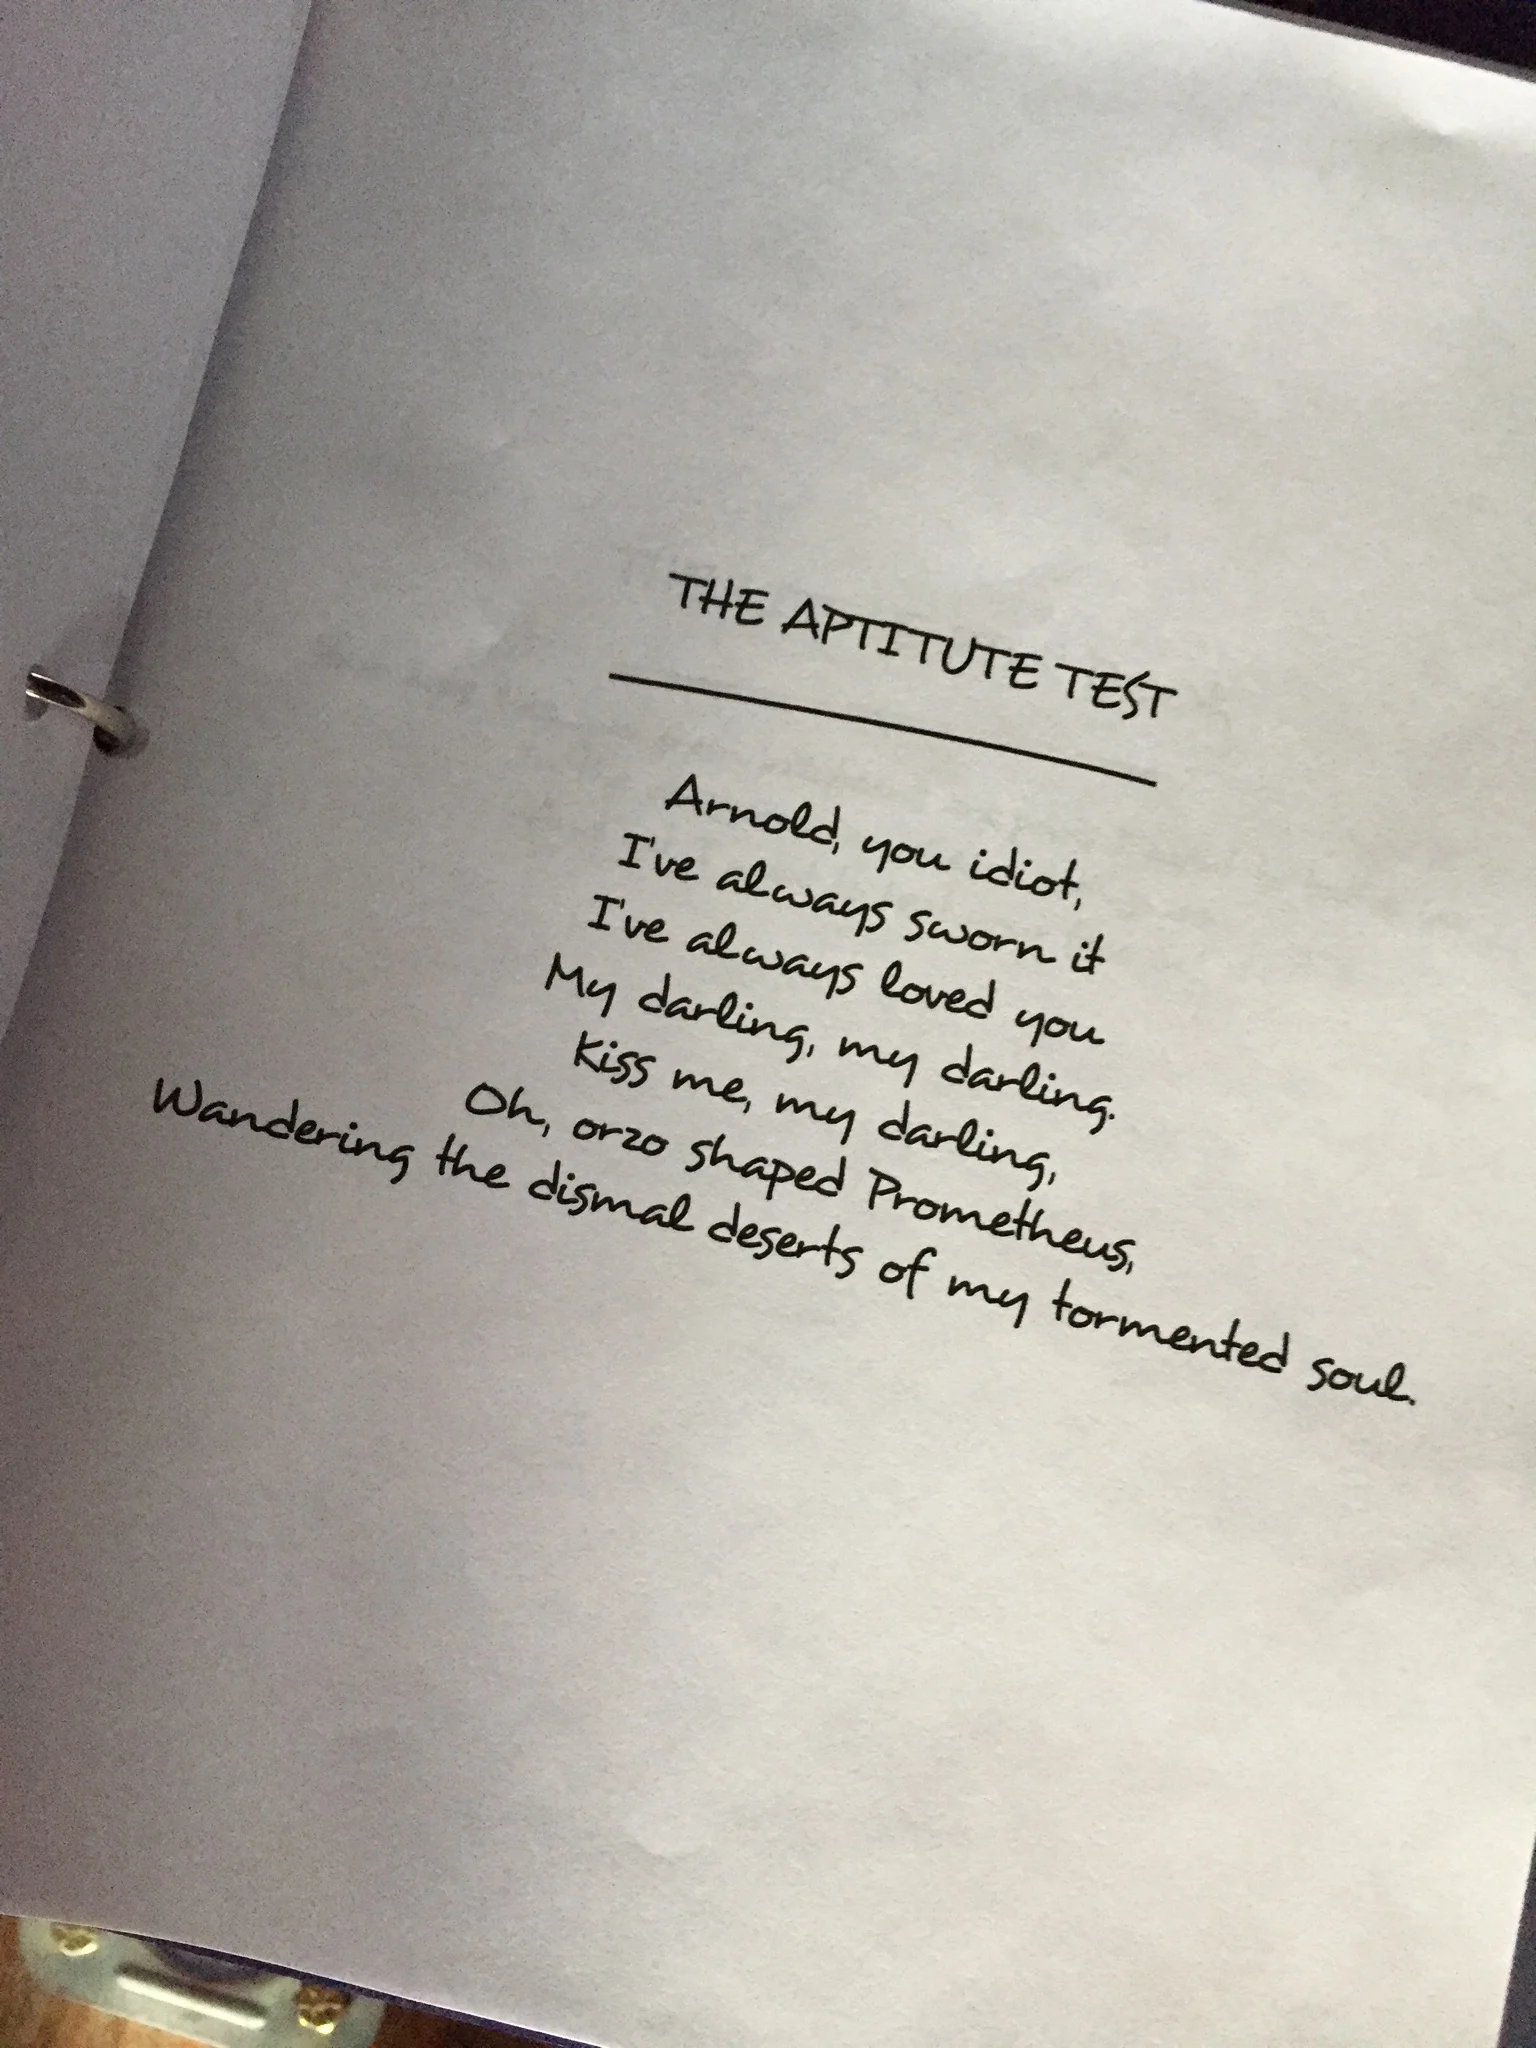 THE APTITUTE TEST
Arnold, you idiot,
I've always sworn it
I've always loved you
My darling, my darling.
Kiss me, my darling,
Oh, orzo shaped Prometheus,
Wandering the dismal deserts of my tormented soul.